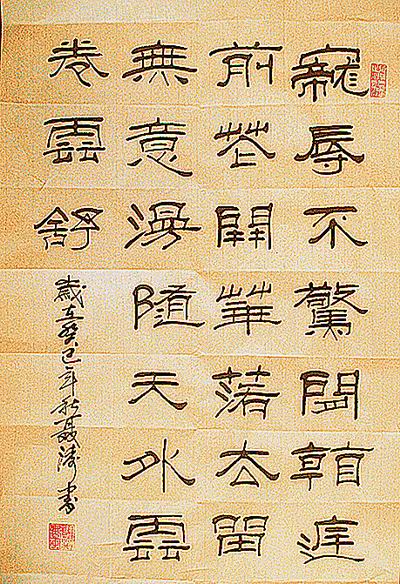 寵辱不驚閒看庭
前花開華落去留
無意漫隨天外雲
卷雲舒
歲在癸巳年秋聶涛書